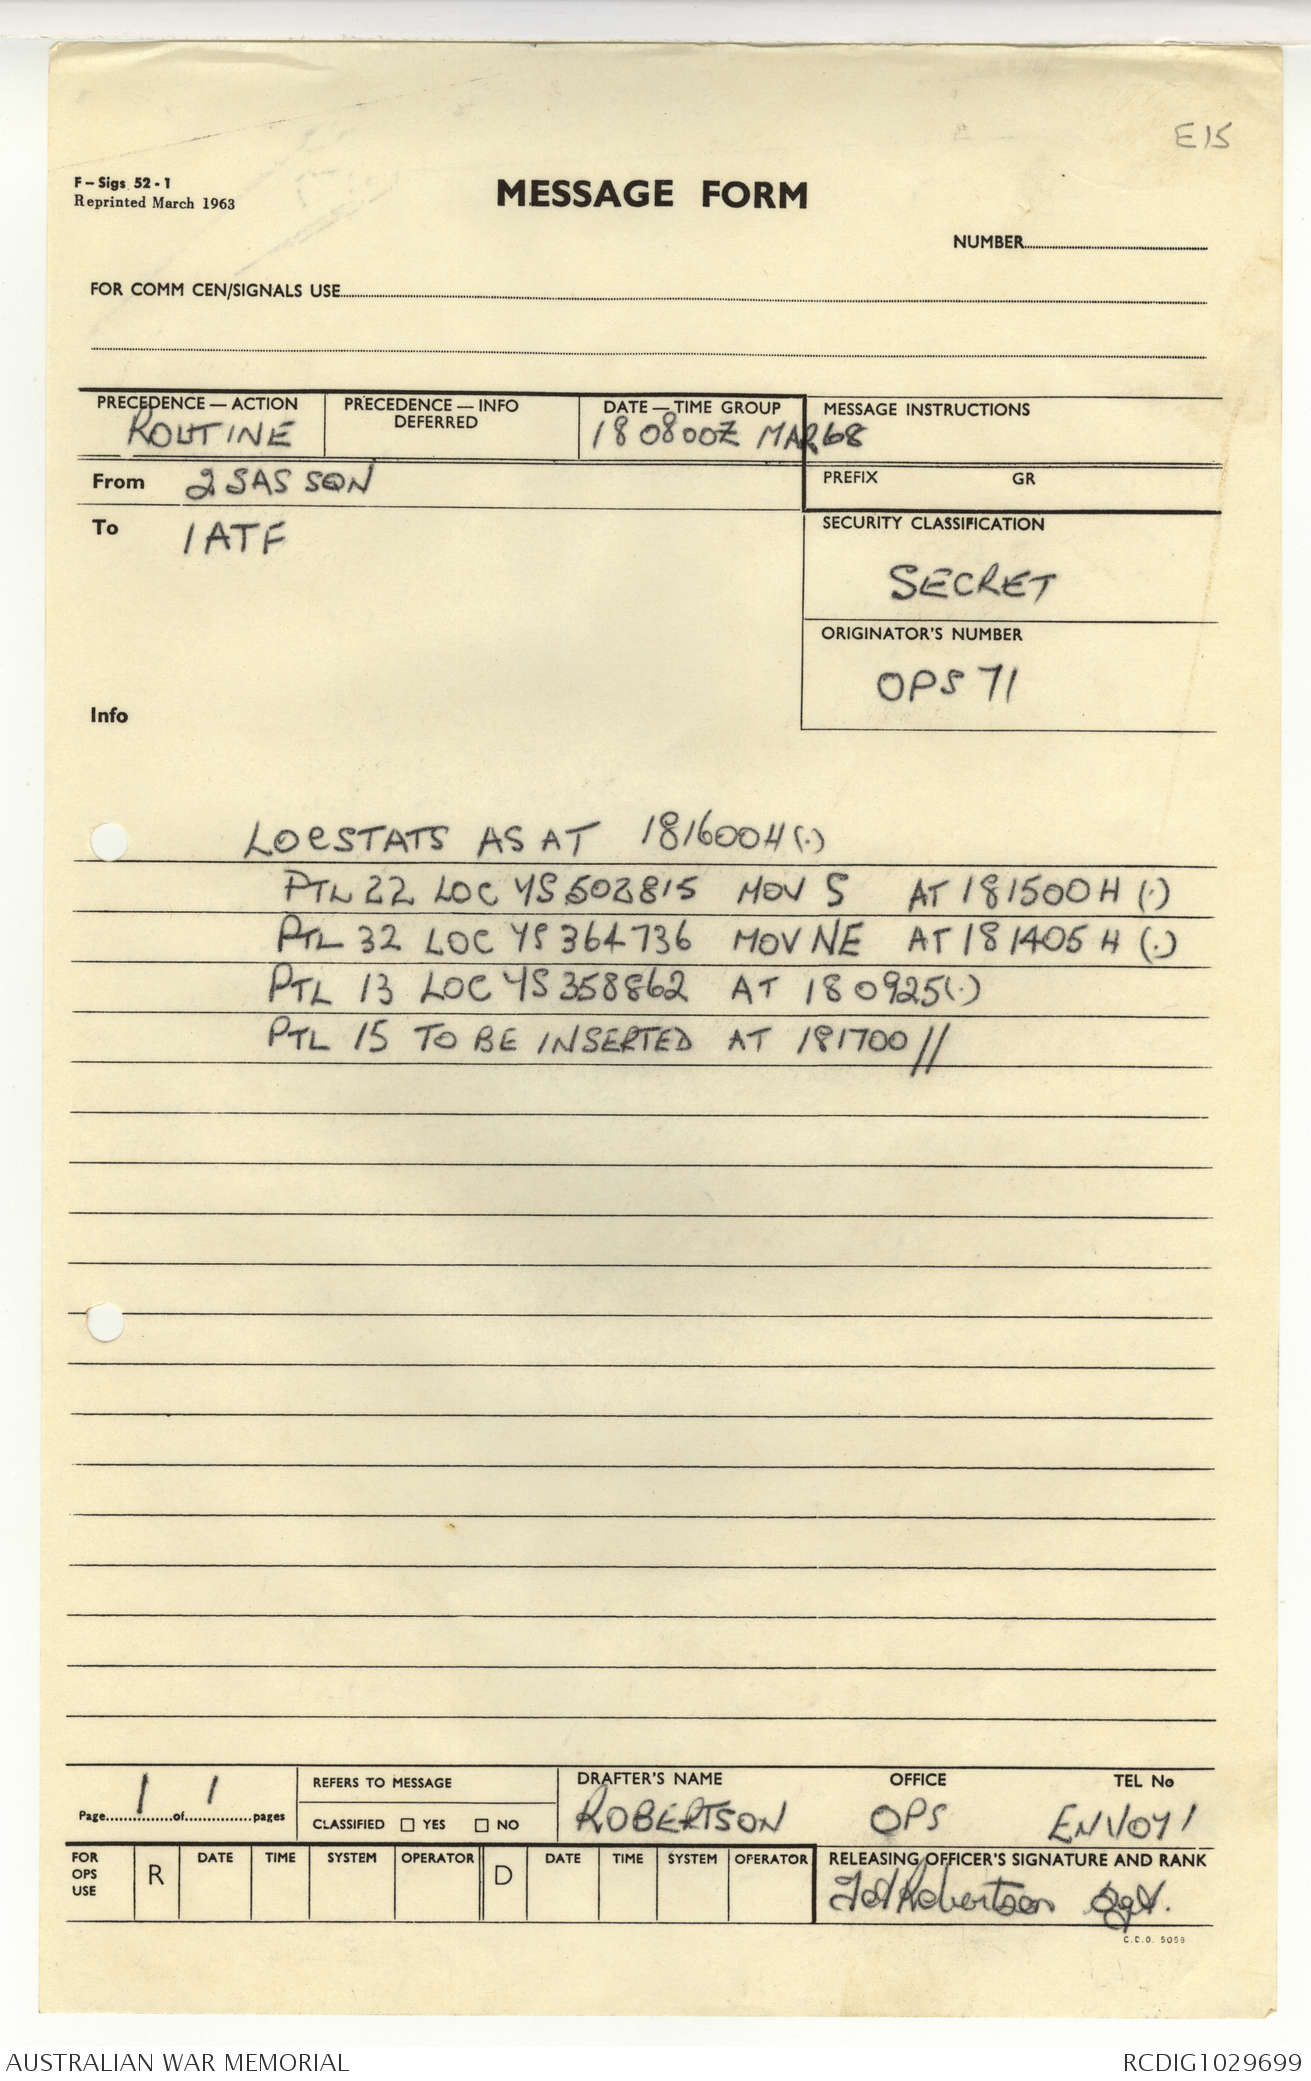 E15
F-Sigs 52-1
Reprinted March 1963
MESSAGE FORM
NUMBER
FOR COMM CEN/SIGNALS USE
PRECEDENCE — ACTION
ROUTINE
PRECEDENCE — INFO
DEFERRED
DATE — TIME GROUP
180800Z MAR 68
MESSAGE INSTRUCTIONS
From 2 SAS SQN
PREFIX GR
To 1 ATF
SECURITY CLASSIFICATION
SECRET
ORIGINATOR'S NUMBER
OPS 71
Info
LOCSTATS AS AT 181600H (.)
PTL 22 LOC YS 503815 MOV S AT 181500H (.)
PTL 32 LOC YS 364736 MOV NE AT 181405H (.)
PTL 13 LOC YS 358862 AT 180925 (.)
PTL 15 TO BE INSERTED AT 181700 //
Page 1 of 1 pages
REFERS TO MESSAGE
CLASSIFIED YES NO
DRAFTER'S NAME
ROBERTSON
OFFICE
OPS
TEL No
ENVOY 1
FOR
OPS
USE
R
DATE TIME SYSTEM OPERATOR
D
DATE TIME SYSTEM OPERATOR
RELEASING OFFICER'S SIGNATURE AND RANK
Robertson Sgt.
C.C.O. 5059
AUSTRALIAN WAR MEMORIAL
RCDIG1029699